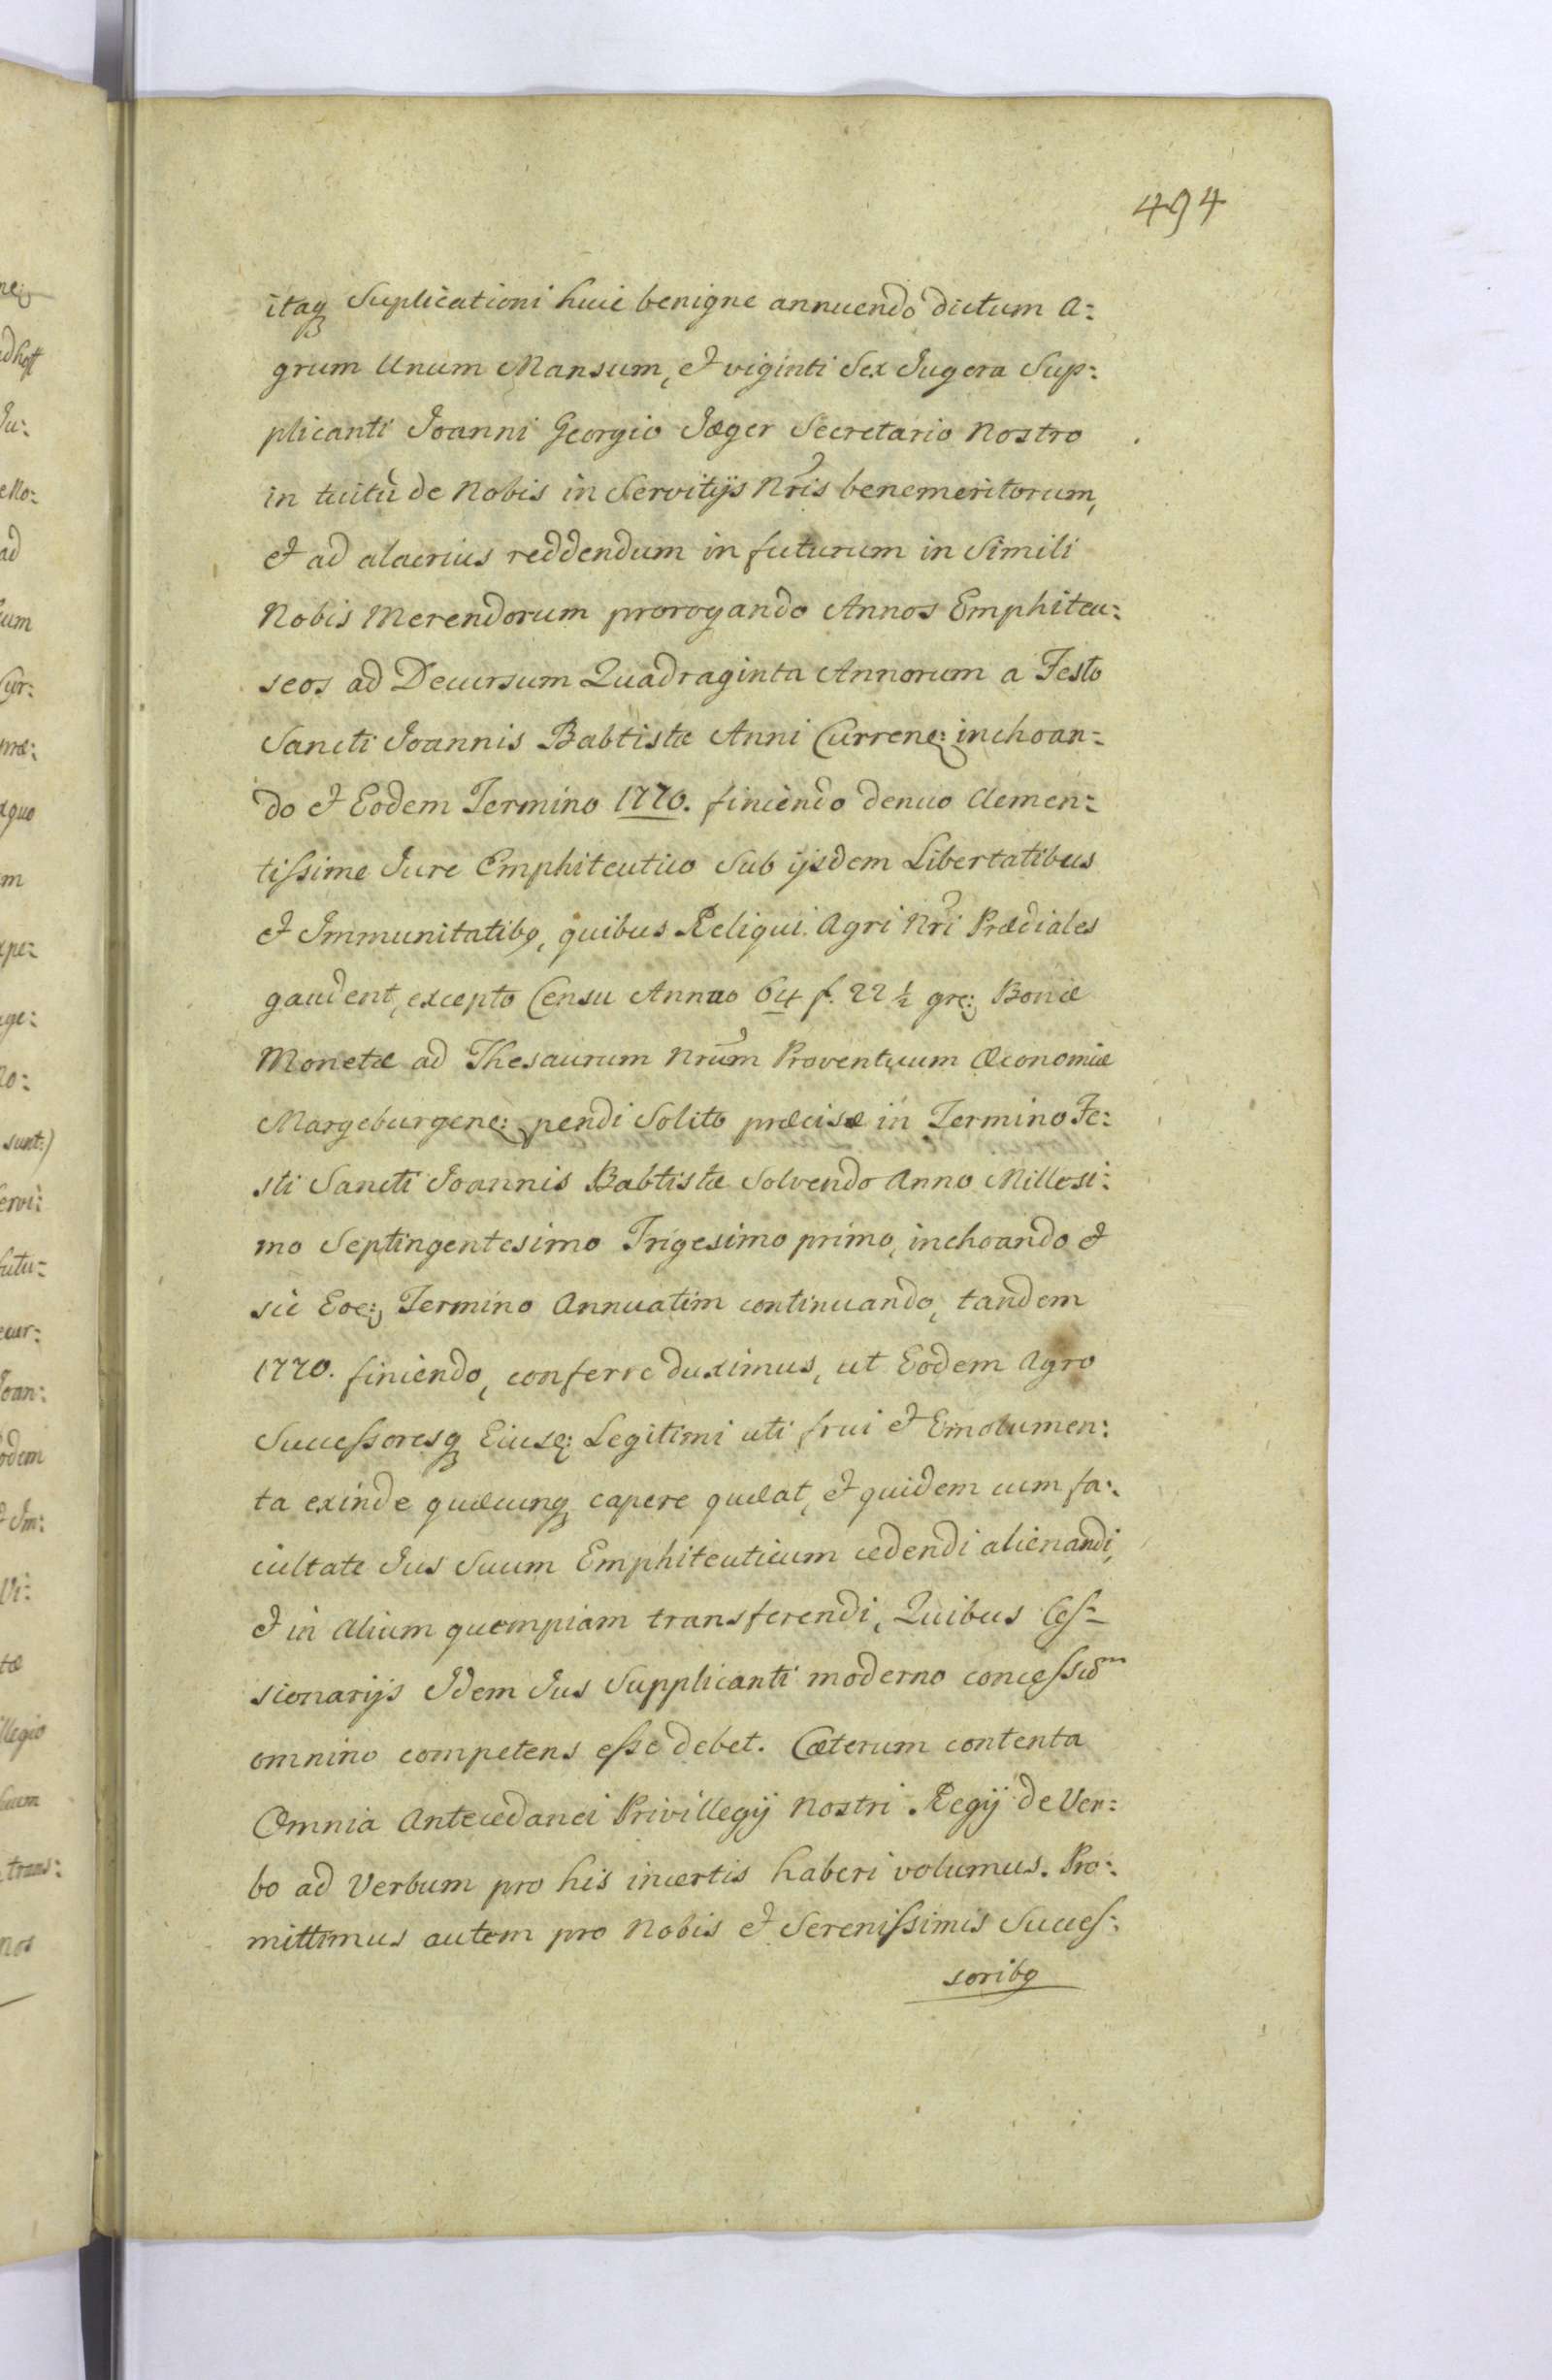 494
itaq Suplicationi huic benigne annuendo dictum A:
grum Unum Mansum, et viginti Sex Jugera Sup:
plicanti Joanni Georgio Jæger Secretario Nostro
in tuitu de Nobis in Servitijs Nris benemeritorum,
et ad alacrius reddendum in futurum in Simili
Nobis Merendorum prorogando Annos Emphiteu:
seos ad Decursum Quadraginta Annorum a Festo
Sancti Joannis Babtistæ Anni Currene: inchoan=
do et Eodem Termino 1770. finiendo denuo Clemen:
tissime Jure Emphiteutico Sub ijsdem Libertatibus
et Immunitatibq, quibus Reliqui Agri Nri Prædiales
gaudent, excepto Censu Annuo 64 f. 22 ½ gre: Bonæ
Monetæ ad Thesaurum Nrum Proventuum Œconomiæ
Margeburgene: pendi Solito præcisæ in Termino Fe:
sti Sancti Joannis Babtistæ Solvendo Anno Millesi:
mo Septingentesimo Trigesimo primo, inchoando et
sic Eoe: Termino Annuatim continuando, tandem
1770. finiendo, conferre duximus, ut Eodem Agro
Successoresq Eiusq: Legitimi uti frui et Emolumen:
ta exinde quæcunq capere quæat, et quidem cum fa:
cultate Jus Suum Emphiteuticum cedendi alienandi,
et in Alium quempiam transferendi, Quibus Ces=
sionarijs Idem Jus Supplicanti moderno concessum
omnino competens esse debet. Cæterum contenta
Omnia Antecedanei Privillegij Nostri Regij de Ver:
bo ad Verbum pro his incertis haberi volumus. Pro:
mittimus autem pro Nobis et Serenissimis Succes:
soribq